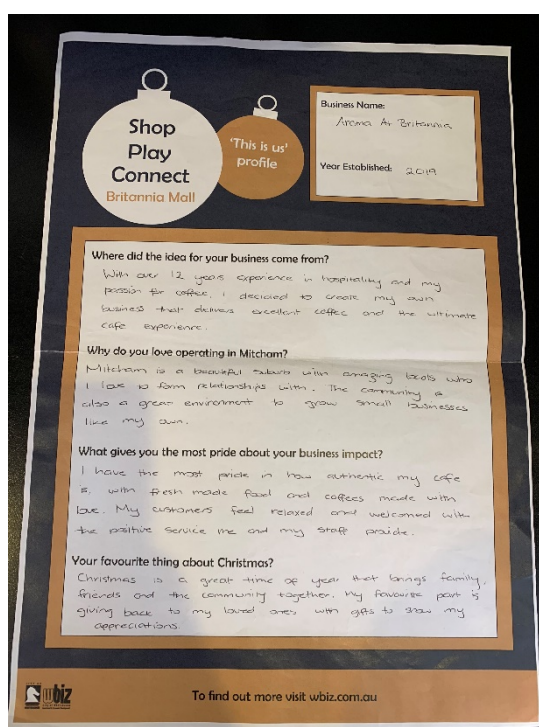 Shop
Play
Connect
Britannia Mall
'This is us'
profile
Business Name:
Aroma At Britannia
Year Established: 2019
Where did the idea for your business come from?
With over 12 years experience in hospitality and my
passion for coffee, i decided to create my own
business that delivers excellent coffee and the ultimate
cafe experience.
Why do you love operating in Mitcham?
Mitcham is a beautiful suburb with amazing locals who
I love to form relationships with. The community is
also a great environment to grow small businesses
like my own.
What gives you the most pride about your business impact?
I have the most pride in how authentic my cafe
is, with fresh made food and coffees made with
love. My customers feel relaxed and welcomed with
the positive service me and my staff provide.
Your favourite thing about Christmas?
Christmas is a great time of year that brings family,
friends and the community together. My favourite part is
giving back to my loved ones with gifts to show my
appreciations.
wbiz
To find out more visit wbiz.com.au